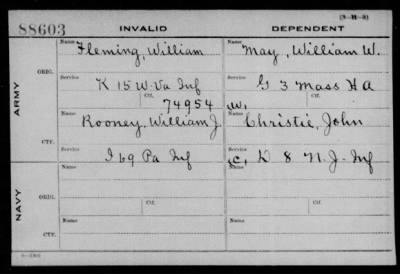 (3—111—3)
88603 INVALID DEPENDENT
Name Name
Fleming, William May, William W.
ORIG. Service Service
K 15 W. Va Inf G 3 Mass H A
Ctf. Ctf.
74954 W.
ARMY
Name Name
Rooney, William J. Christie, John
CTF. Service Service
I 69 Pa Inf (C) D 8 N. J. Inf
Name Name
ORIG. Service Service
Ctf. Ctf.
NAVY
Name Name
CTF. Service Service